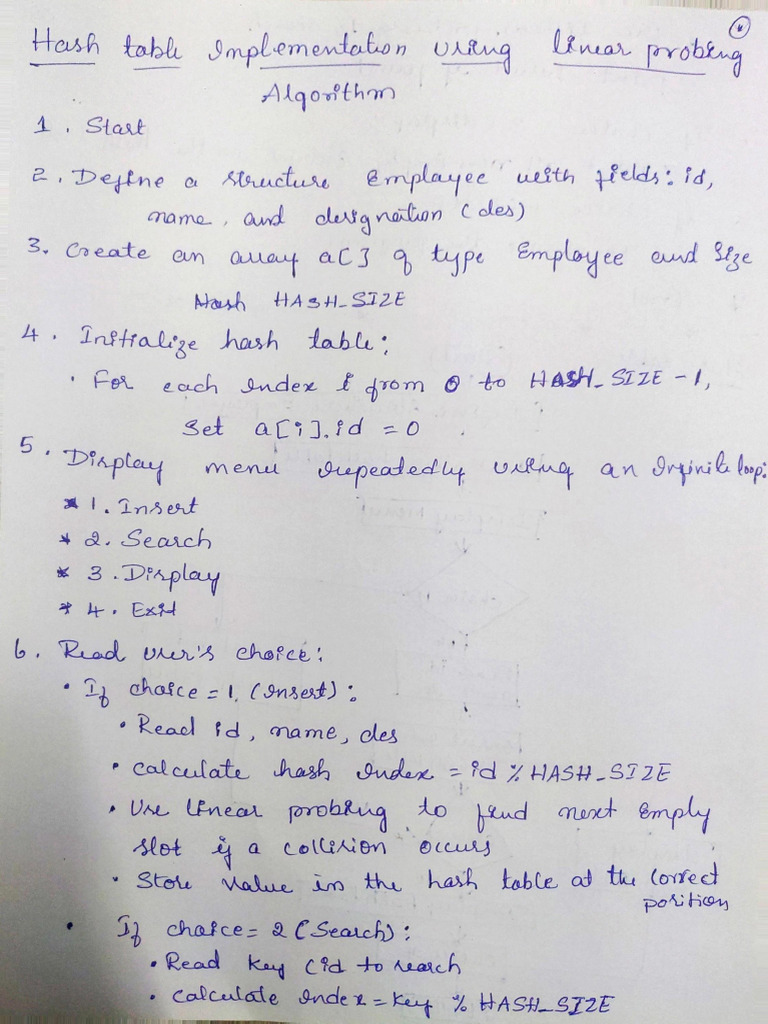 Hash table Implementation using linear probing
Algorithm
1. Start
2. Define a structure Employee with fields: id,
name, and designation (des)
3. Create an array a[] of type Employee and Size
HASH_SIZE
4. Initialize hash table:
• For each index i from 0 to HASH_SIZE - 1,
Set a[i].id = 0
5. Display menu repeatedly using an infinite loop:
* 1. Insert
* 2. Search
* 3. Display
* 4. Exit
6. Read user's choice:
• If choice = 1 (Insert):
• Read id, name, des
• Calculate hash index = id % HASH_SIZE
• Use linear probing to find next empty
slot if a collision occurs
• Store value in the hash table at the correct
position
• If choice = 2 (Search):
• Read key (id to search
• Calculate index = key % HASH_SIZE